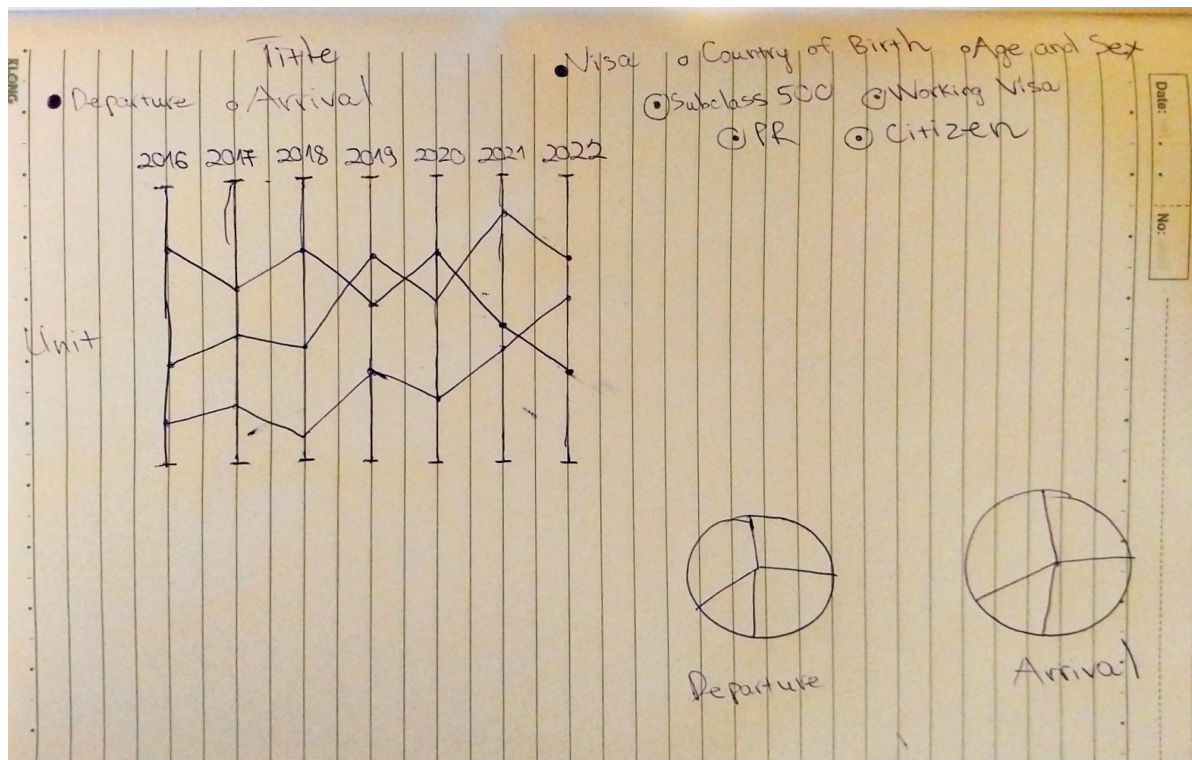 Title
Departure Arrival
Visa Country of Birth Age and Sex
Subclass 500 Working Visa
PR Citizen
2016 2017 2018 2019 2020 2021 2022
Unit
Departure
Arrival
KLONG
Date:
No: